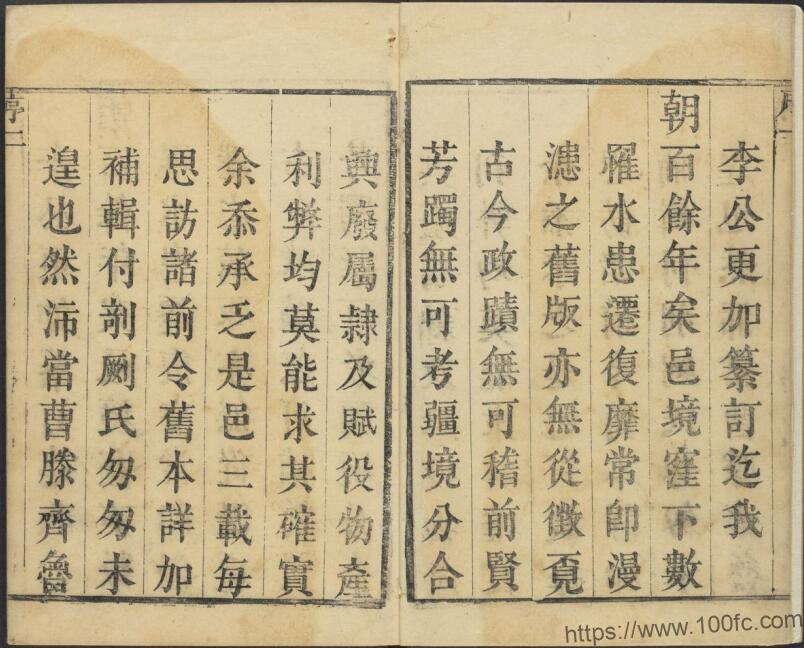 李公更加纂訂迄我
朝百餘年矣邑境窪下數
罹水患遷復靡常卽漫
漶之舊版亦無從徵覓
古今政蹟無可稽前賢
芳躅無可考疆境分合
興廢屬隸及賦役物產
利弊均莫能求其確實
余忝承乏是邑三載每
思訪諸前令舊本詳加
補輯付剞劂氏匆匆未
遑也然沛當曹滕齊魯
序二
https://www.100fc.com